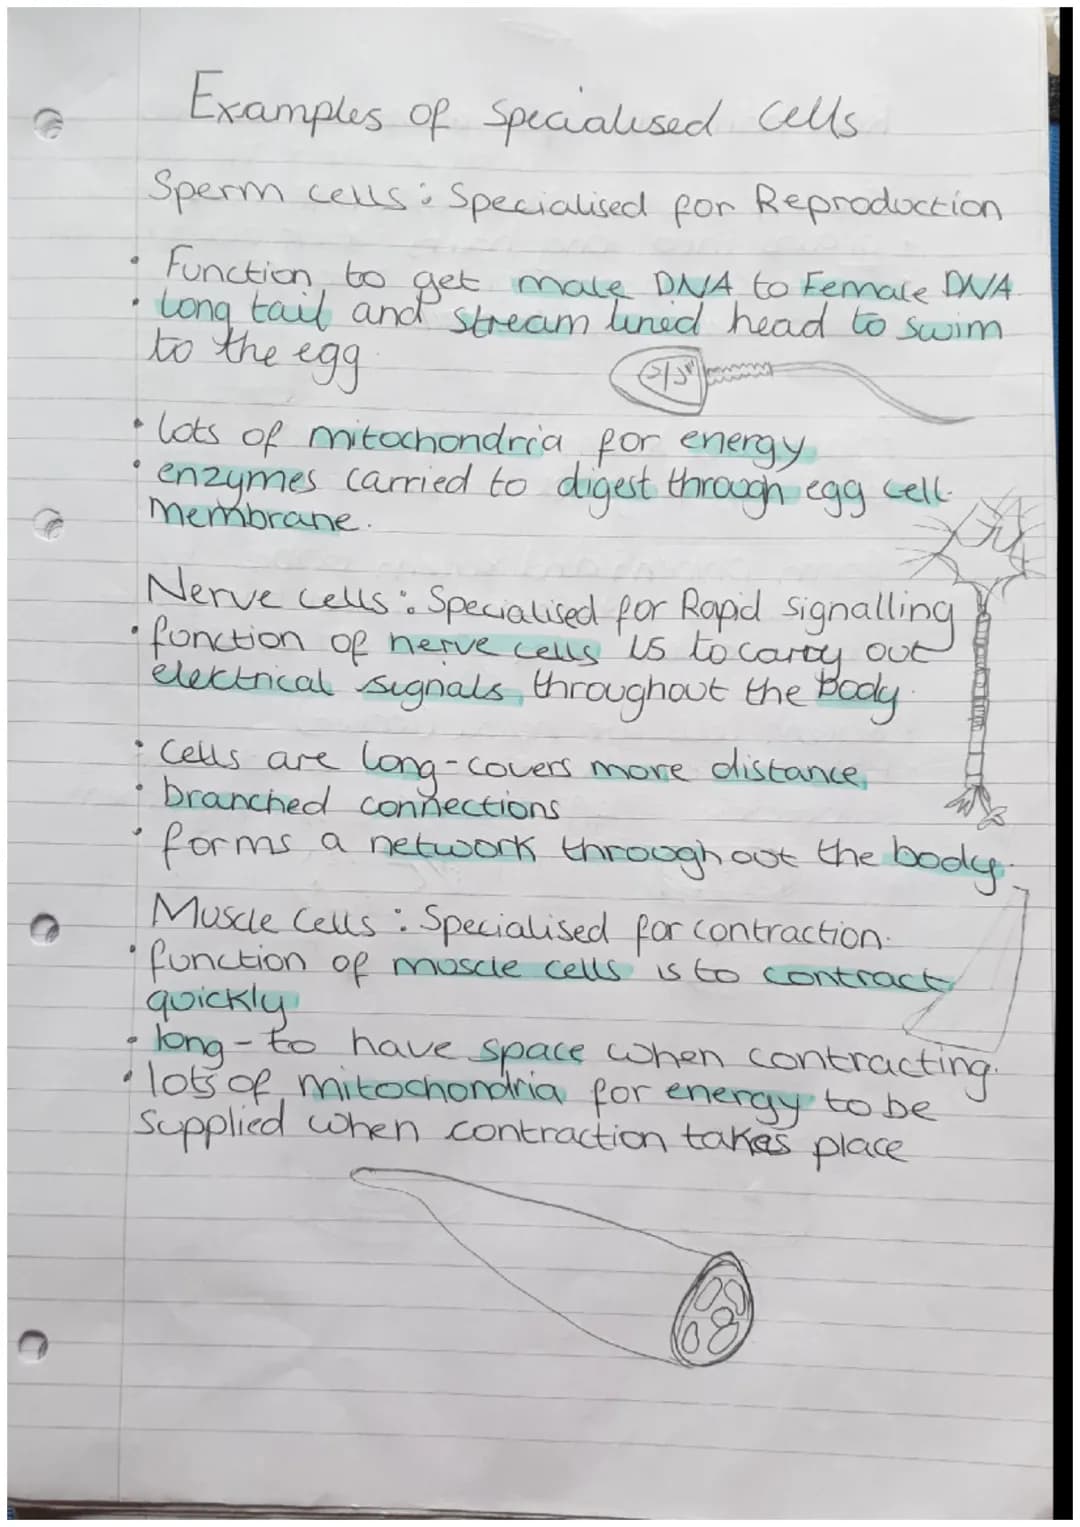 Examples of Specialised cells
Sperm cells: Specialised for Reproduction
• Function to get male DNA to Female DNA.
• Long tail and stream lined head to swim
to the egg.
• lots of mitochondria for energy
• enzymes carried to digest through egg cell.
Membrane.
Nerve cells: Specialised for Rapid signalling
• function of nerve cells is to carry out
electrical signals throughout the body.
• Cells are long-covers more distance,
• branched connections
• forms a network throughout the body.
Muscle Cells: Specialised for contraction.
• function of muscle cells is to contract
quickly
• long - to have space when contracting.
• lots of mitochondria for energy to be
supplied when contraction takes place